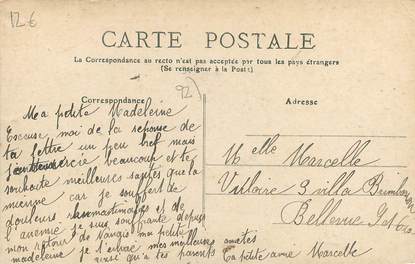 12€
CARTE POSTALE
La Correspondance au recto n'est pas acceptée par tous les pays étrangers
(Se renseigner à la Poste)
Correspondance
92
Adresse
Ma petite Madeleine
Excuse moi de la reponse de
ta lettre un peu bref mais
remercie beaucoup et te
souhaite meilleures santés que la
mienne car je souffert de
douleurs et de
l'anemie je suis souffrante depuis
mon retour de Nangis ma petite
madeleine je t'envoie mes meilleures amitiés
ainsi qu'a tes parents
Ta petite amie Marcelle
Melle Marcelle
3 villa
Bellevue S et O